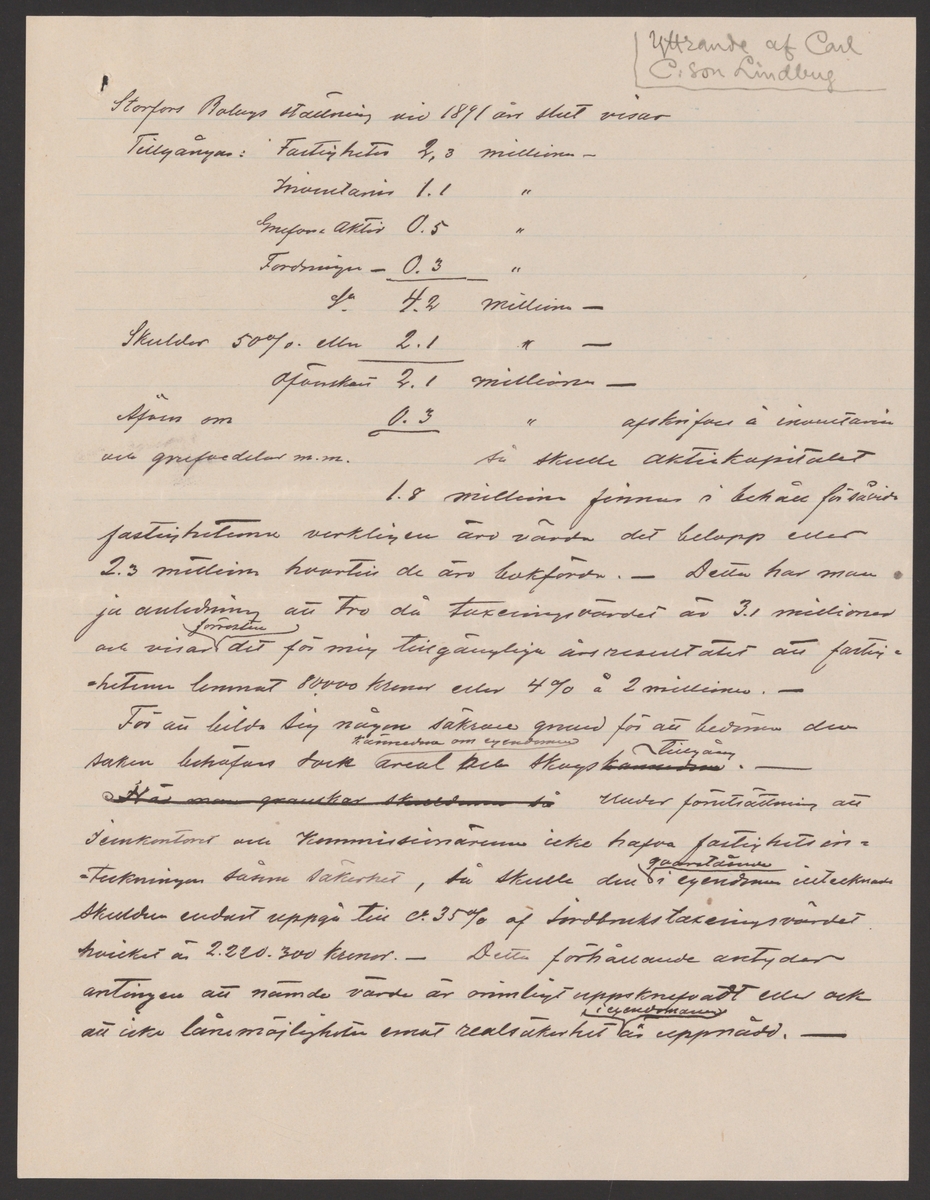 Yttrande af Carl
C:son Lindberg
Storfors Bolags ställning vid 1891 års slut visar
Tillgångar: Fastigheter 2,3 millioner —
Inventarier 1.1 "
Grufvor & Aktier 0.5 "
Fordringar — 0.3 "
Sa 4.2 millioner —
Skulder 50% eller 2.1 " —
öfverskott 2.1 millioner —
Äfven om 0.3 " afskrifves å inventarier
och grufvedelar m.m. så skulle aktiekapitalet
1.8 millioner finnas i behåll försåvidt
fastigheterna verkligen äro värda det belopp eller
2.3 millioner hvartill de äro bokförda. — Detta har man
ju anledning att tro då taxeringsvärdet är 3.1 millioner
förresten
och visar det för mig tillgängliga årsresultatet att fastig=
=heterna lemnat 80,000 kronor eller 4% å 2 millioner. —
För att bilda sig någon säkrare grund för att bedöma den
kännedom om egendomens tillgång
saken behöfves dock areal och skogskännedom. —
När man granskar skulderna så Under förutsättning att
Jernkontoret och Kommissionärerna icke hafva fastighetsin=
qvarstående
=teckningar såsom säkerhet, så skulle den i egendomen intecknade
skulden endast uppgå till ca 35% af Jordbrukstaxeringsvärdet
hvilket är 2.220.300 kronor. — Detta förhållande antyder
antingen att nämda värde är orimligt uppskrufvadt eller ock
i egendomen
att icke lånemöjligheten emot realsäkerhet är uppnådd. —